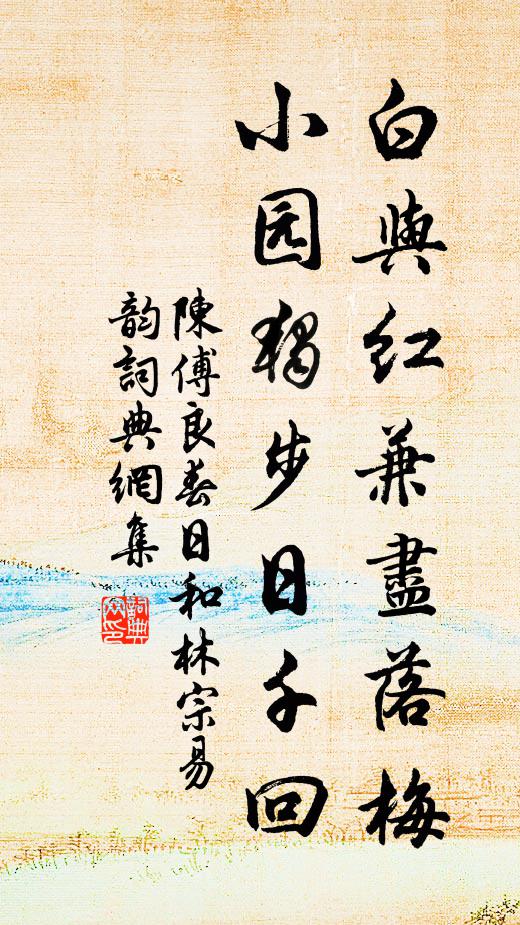 白與红兼盡落梅
小园独步日千回
陳傅良春日和林宗易
韵詞典網集
詞典网印